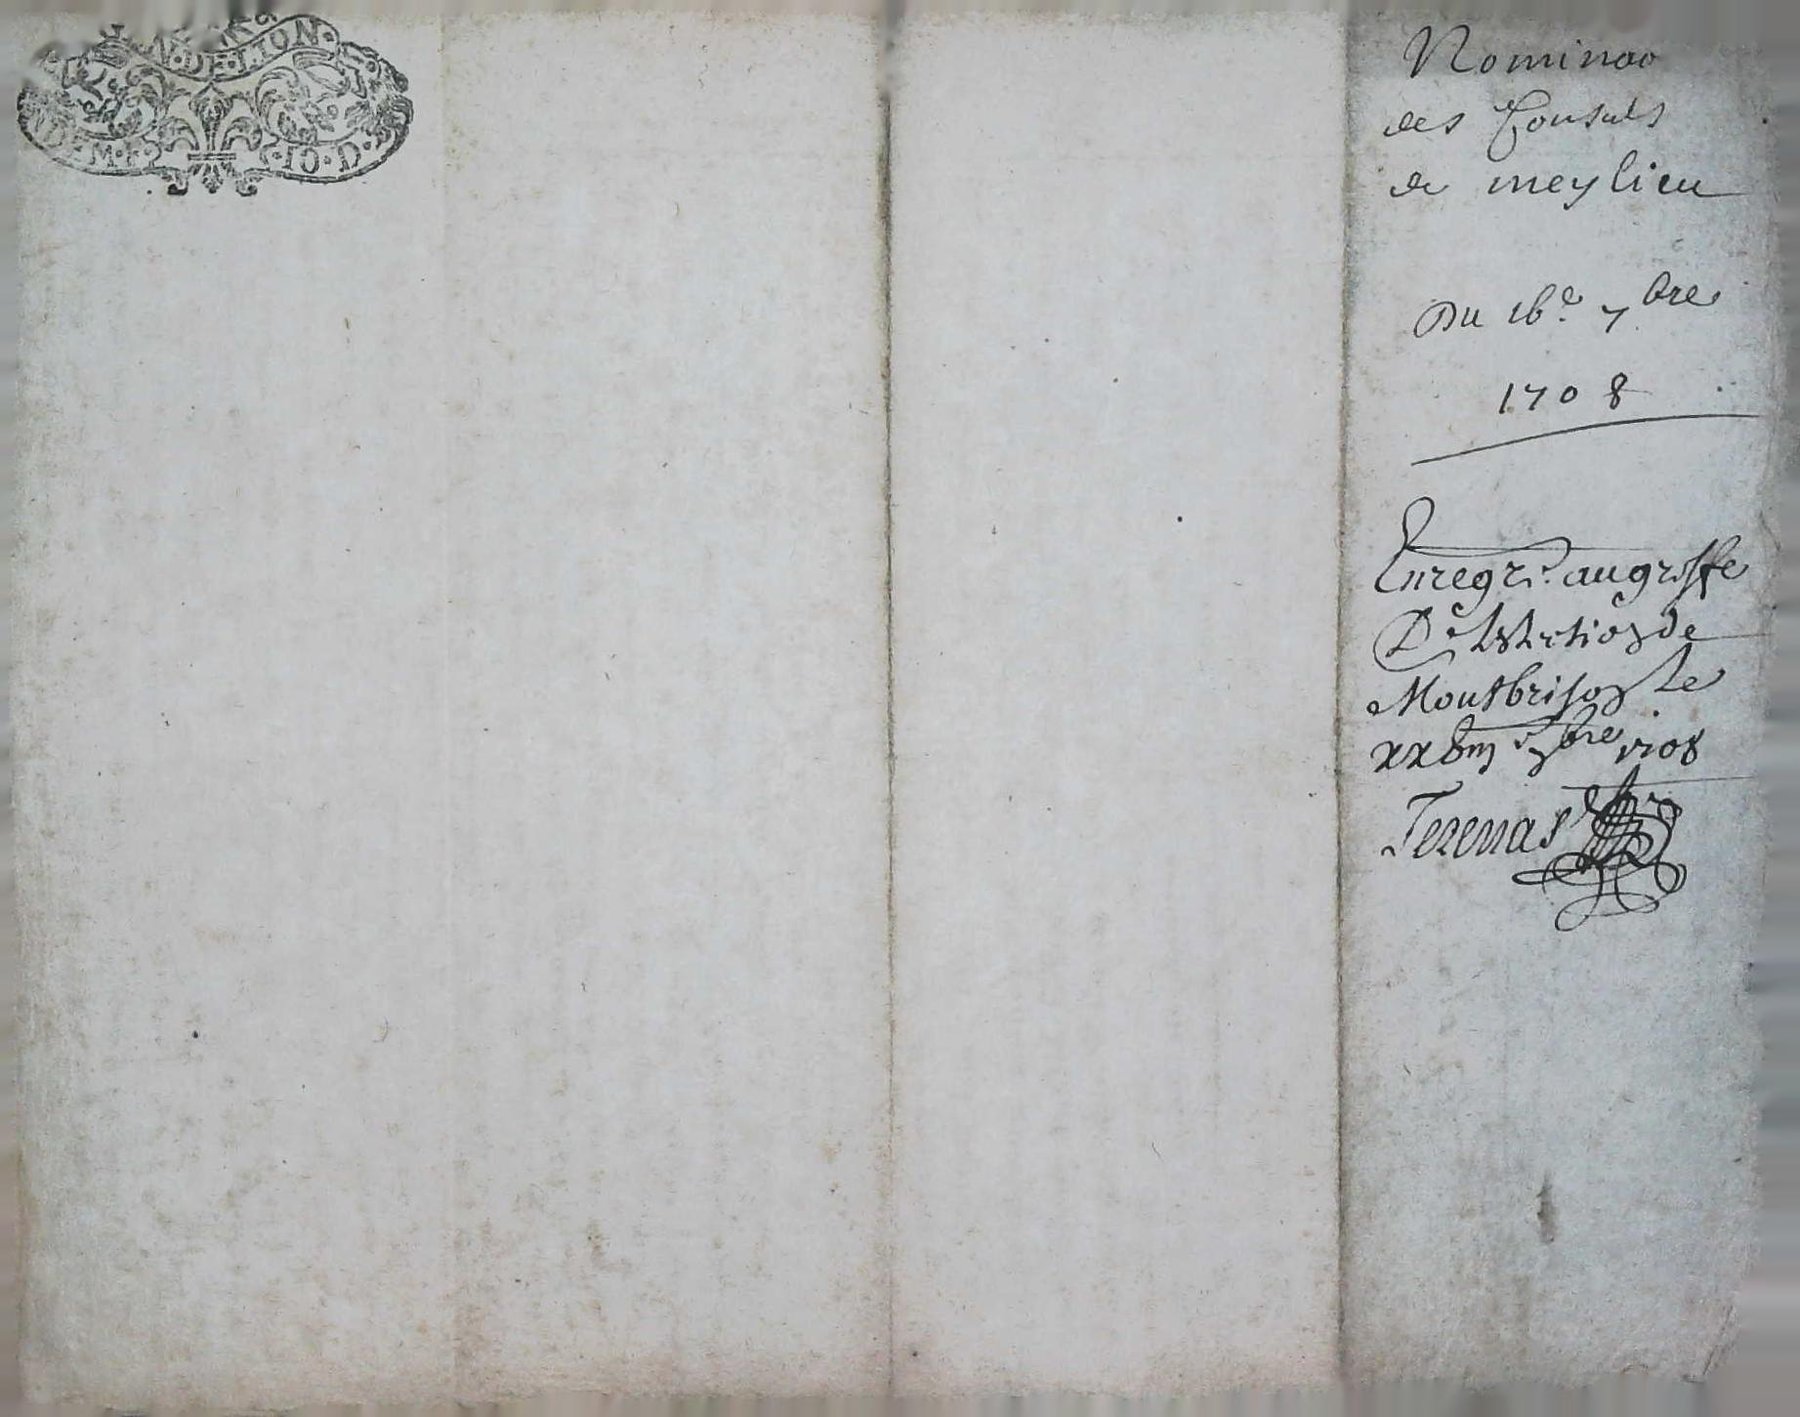 DE LION
10 D
Nominao
des Consuls
de meylieu
Du 16e 7bre
1708
Enregre. au greffe
De Lelection de
Montbrison Le
xxbm 7bre 1708
Terenas